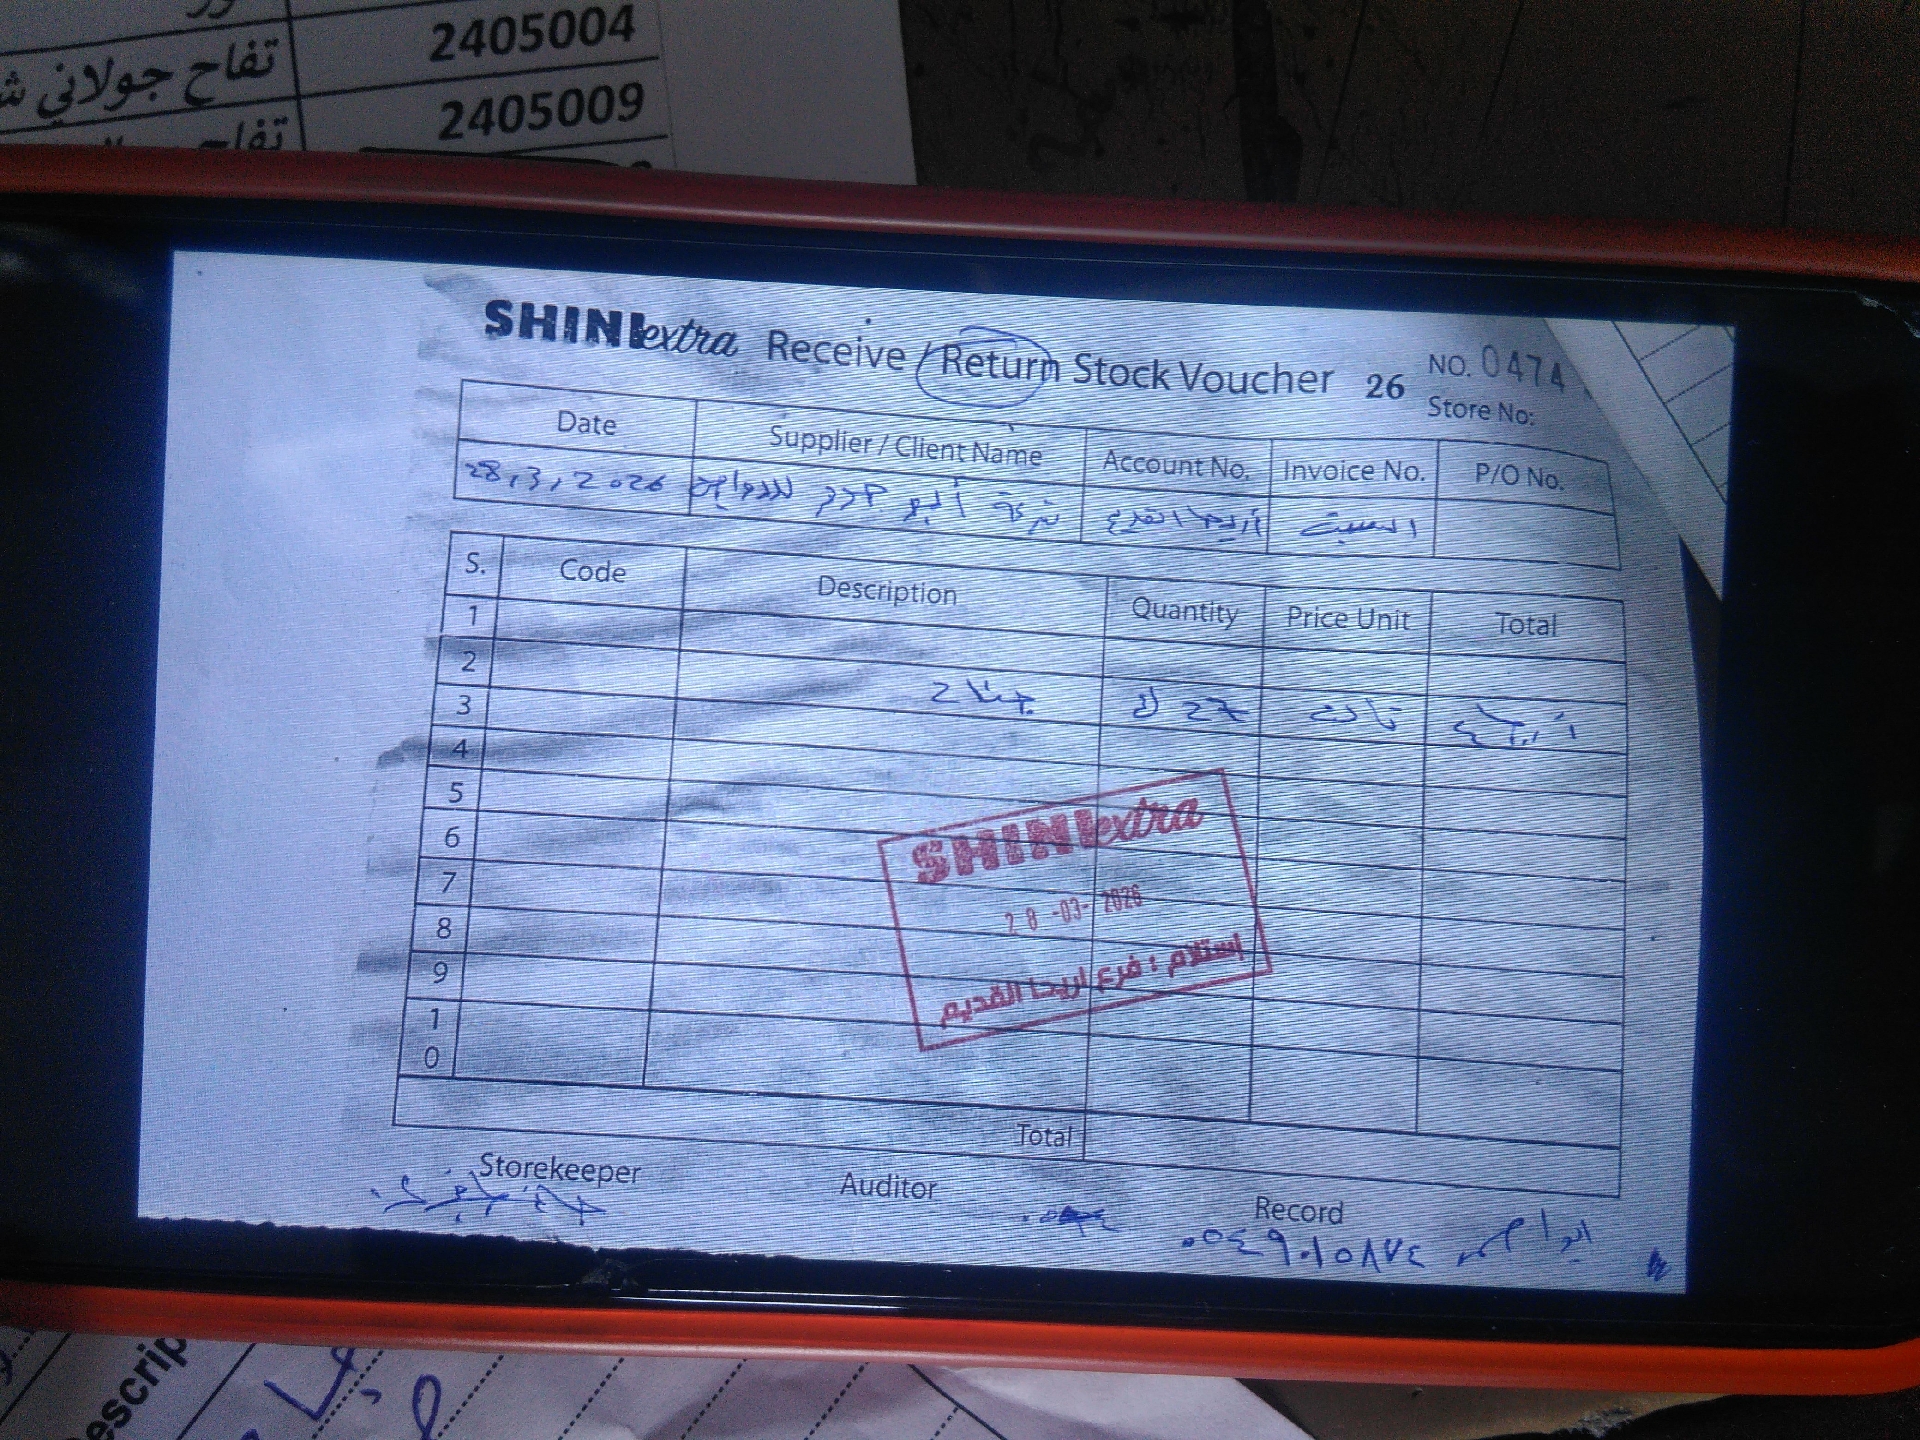 2405004
تفاح جولاني
2405009
تفاح
SHINIextra Receive / Return Stock Voucher 26 NO. 0474
Store No:
Date Supplier / Client Name Account No. Invoice No. P/O No.
28,3,2026 شركة أبو للدواجن السبت
S. Code Description Quantity Price Unit Total
1
2
3 جناح 27 ك تالف
4
5
6
7
8
9
10
SHINIextra
28-03-2026
إستلام : فرع اريحا القديم
Total
Storekeeper Auditor Record
٠٥٤٩٠١٥٨٧٤
escrip